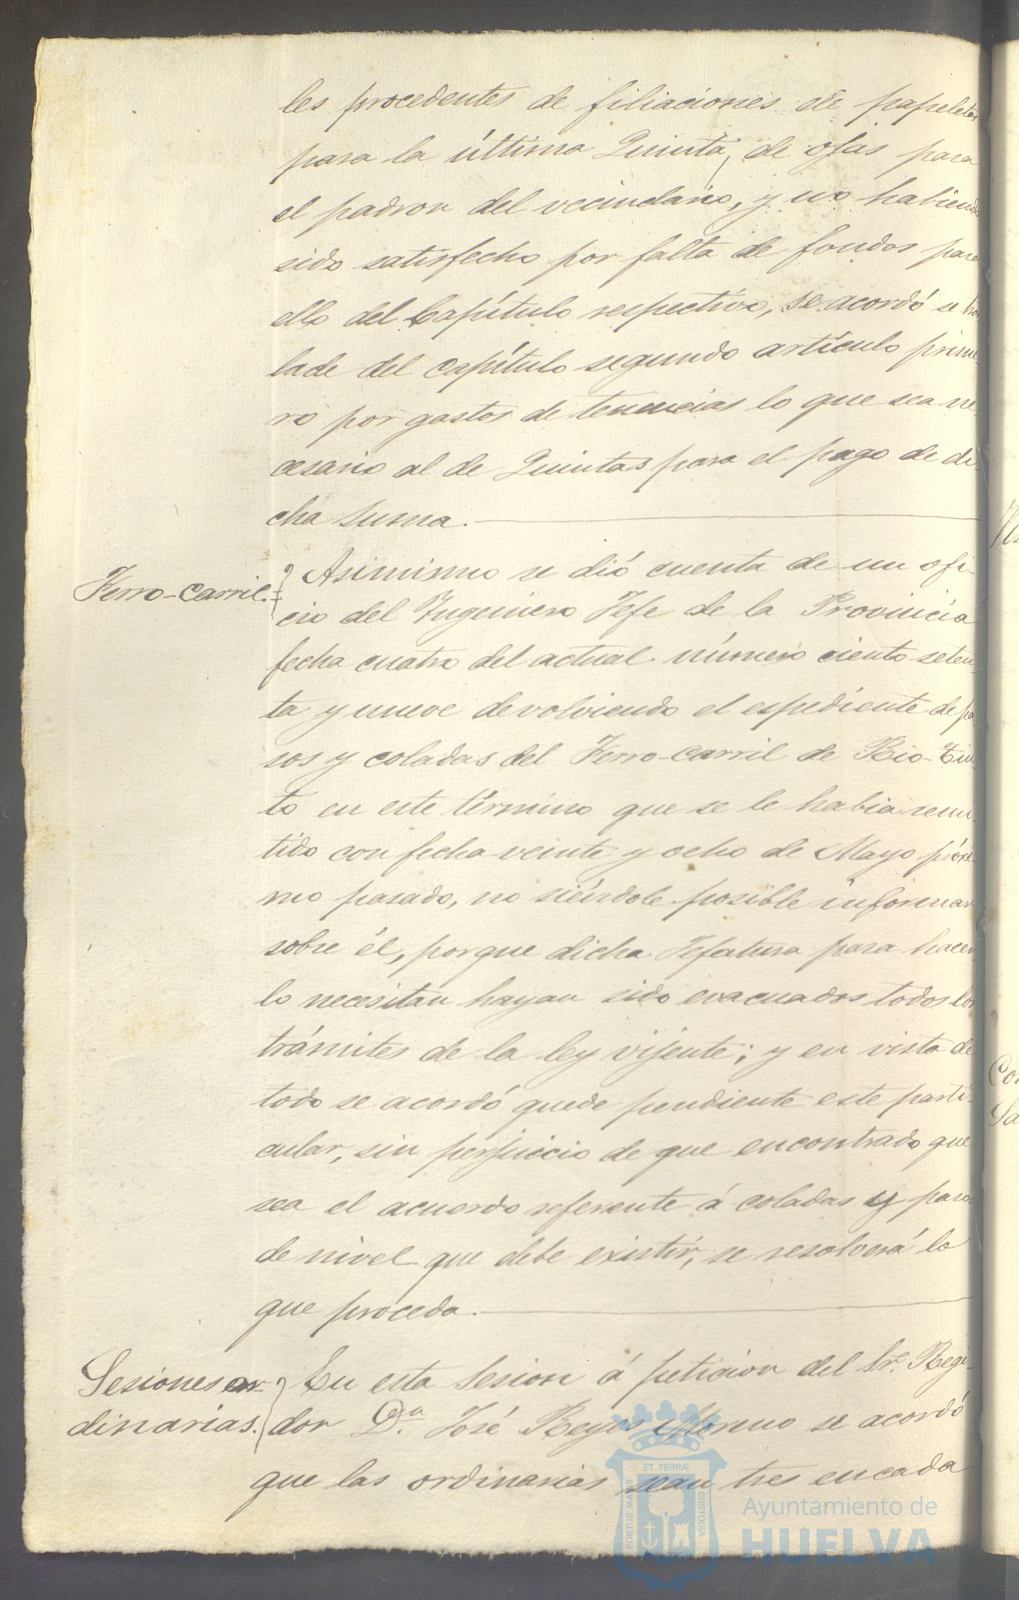 les procedentes de filiaciones de papeletas
para la última Quinta, de ojas para
el padron del vecindario, y no habiendo
sido satisfecho por falta de fondos para
ello del Capítulo respectivo, se acordó se tras
lade del capítulo segundo artículo prime
ro por gastos de tenencias lo que sea ne
cesario al de Quintas para el pago de di
cha suma.
Ferro-carril.
Asimismo se dió cuenta de un ofi-
cio del Ingeniero Jefe de la Provincia
fecha cuatro del actual número ciento seten-
ta y nueve devolviendo el espediente de pa
sos y coladas del Ferro-carril de Rio-Tin
to en este término que se le habia remi
tido con fecha veinte y ocho de Mayo próxi
mo pasado, no siéndole posible informar
sobre él, porque dicha Jefatura para hacer
lo necesitan hayan sido evacuados todos los
trámites de la ley vijente; y en vista de
todo se acordó quede pendiente este parti-
cular, sin perjuicio de que encontrado que
sea el acuerdo referente á coladas y paso
de nivel que debe existir, se resolverá lo
que proceda.
Sesiones or-
dinarias.
En esta Sesion á peticion del Sr. Regi-
dor Dn. José Reyes Moreno se acordó
que las ordinarias sean tres en cada
Co
Sa
ET TERRÆ
PORTUS MARIS
CUSTODIA
Ayuntamiento de
HUELVA